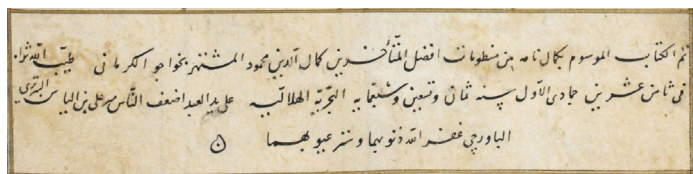 تم الكتاب الموسوم بكمال نامه من منظومات افضل المتأخرين كمال الدين محمود المشتهر بخواجو الكرمانى طيب الله ثراه
فى ثامن عشرين جمادى الاول سنه ثمان وتسعين وسبعمايه الهجريه الهلاليه على يد العبد اضعف الناس مير على بن الياس التبريزى
الباورچى غفر الله ذنوبهما وستر عيوبهما